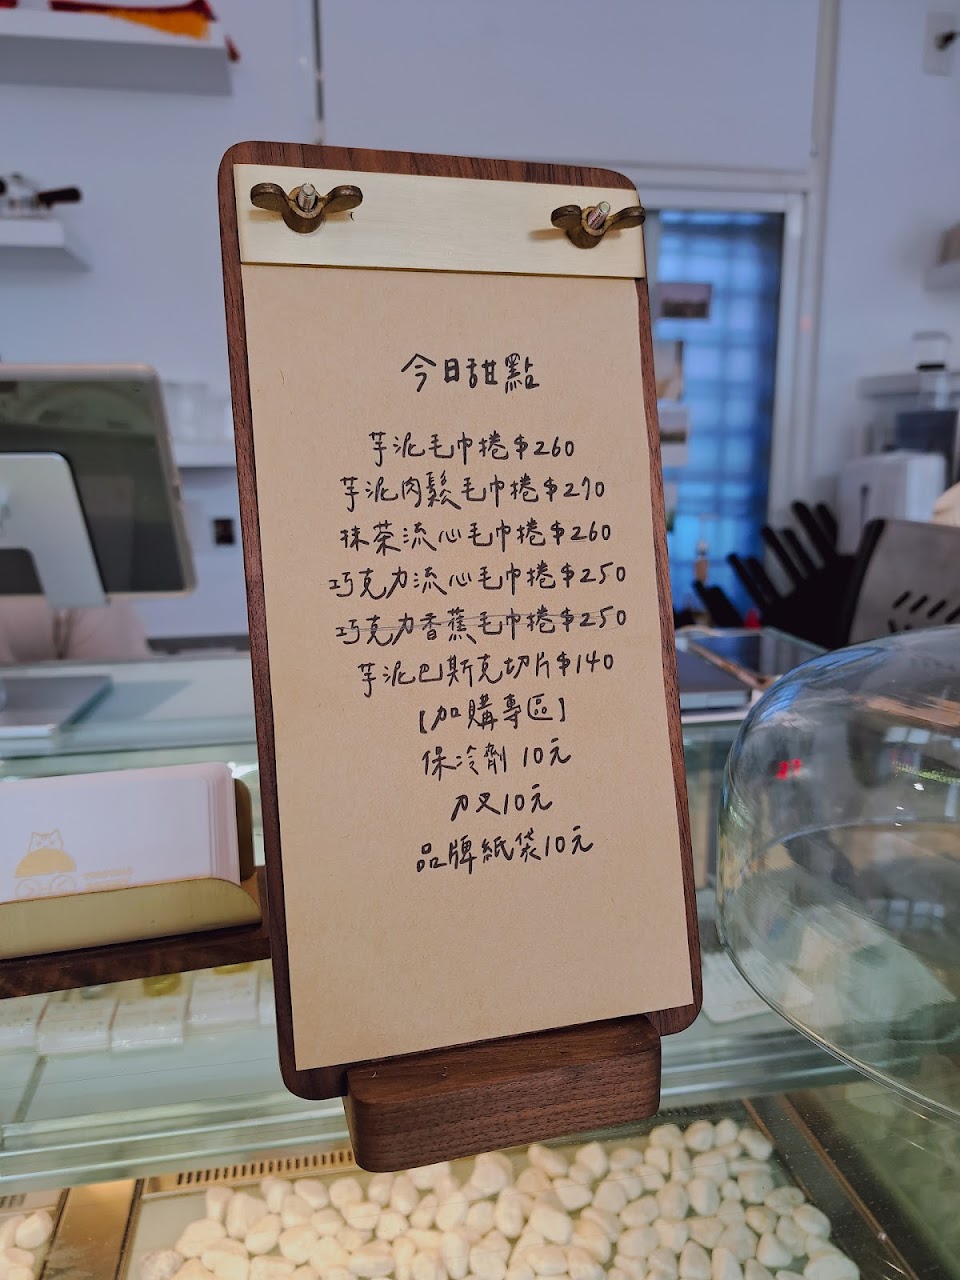 今日甜點
芋泥毛巾捲$260
芋泥肉鬆毛巾捲$270
抹茶流心毛巾捲$260
巧克力流心毛巾捲$250
巧克力香蕉毛巾捲$250
芋泥巴斯克切片$140
【加購專區】
保冷劑 10元
刀叉10元
品牌紙袋10元